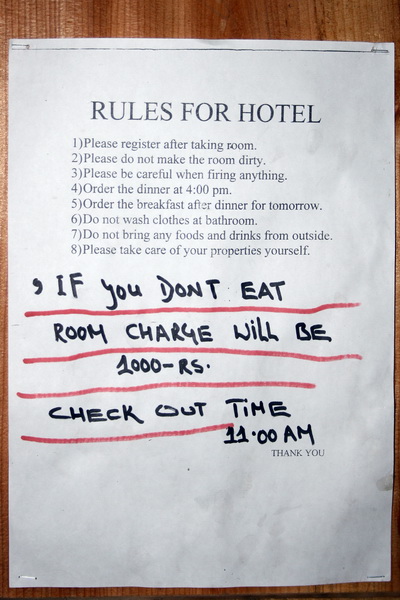 RULES FOR HOTEL
1)Please register after taking room.
2)Please do not make the room dirty.
3)Please be careful when firing anything.
4)Order the dinner at 4:00 pm.
5)Order the breakfast after dinner for tomorrow.
6)Do not wash clothes at bathroom.
7)Do not bring any foods and drinks from outside.
8)Please take care of your properties yourself.
9 IF you DONT EAT
ROOM CHARGE WILL BE
1000-RS.
CHECK OUT TIME
11.00 AM
THANK YOU